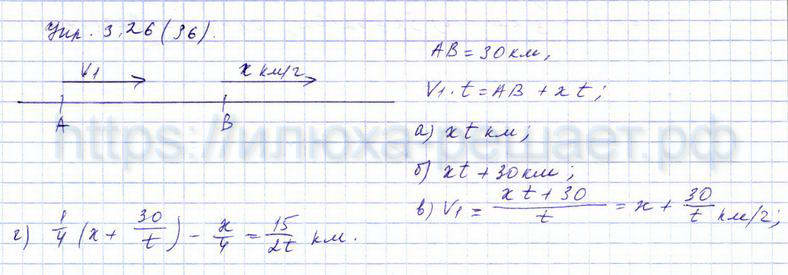 Упр. 3.26 (36).
V1
x км/г
A
B
AB = 30 км,
V1 · t = AB + xt;
а) xt км;
б) xt + 30 км;
в) V1 = (xt + 30)/t = x + 30/t км/г;
г) 1/4 (x + 30/t) - x/4 = 15/2t км.
https://илюха-решает.рф